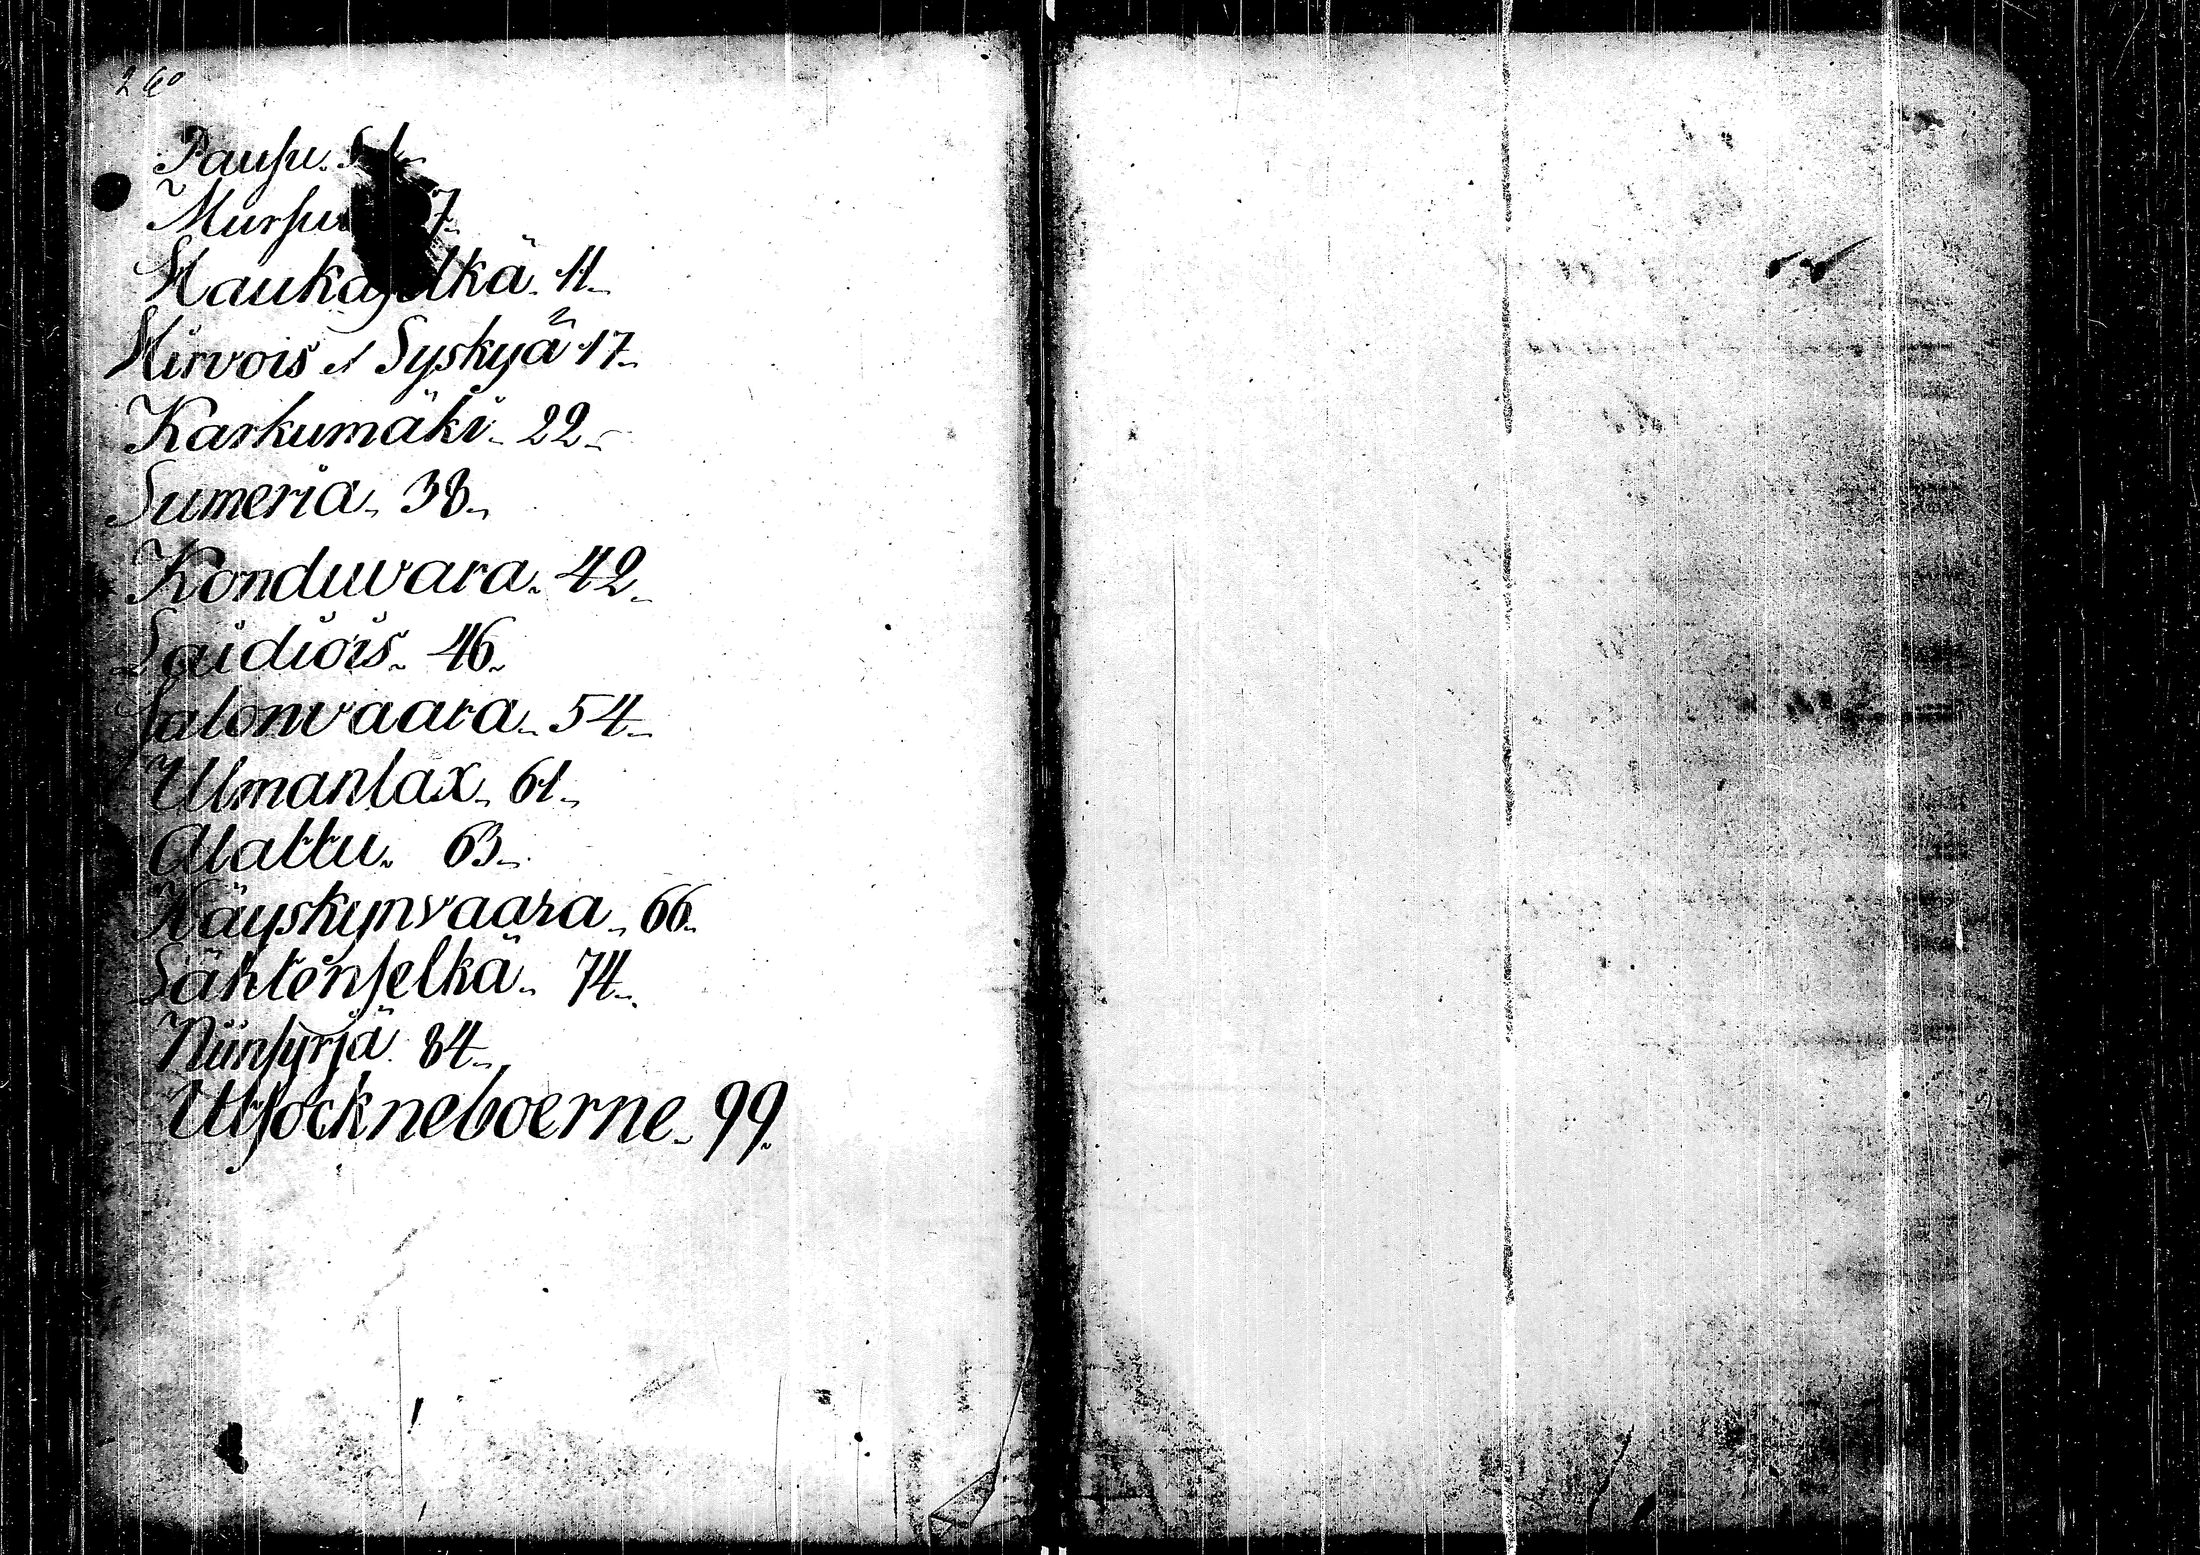 260
Pausu.
Mursu 7
Haukaselkä. 11.
Hirvois et Syskyä 17.
Karkumäki. 22.
Sumeria. 38.
Konduvara. 42.
Laidiois. 46.
Salonvaara. 54.
Ulmanlax. 61.
Alattu. 63.
Näyskynvaara. 66.
Lähtenselkä. 74.
Niinsyrjä 84.
Utsockneboerne. 99.